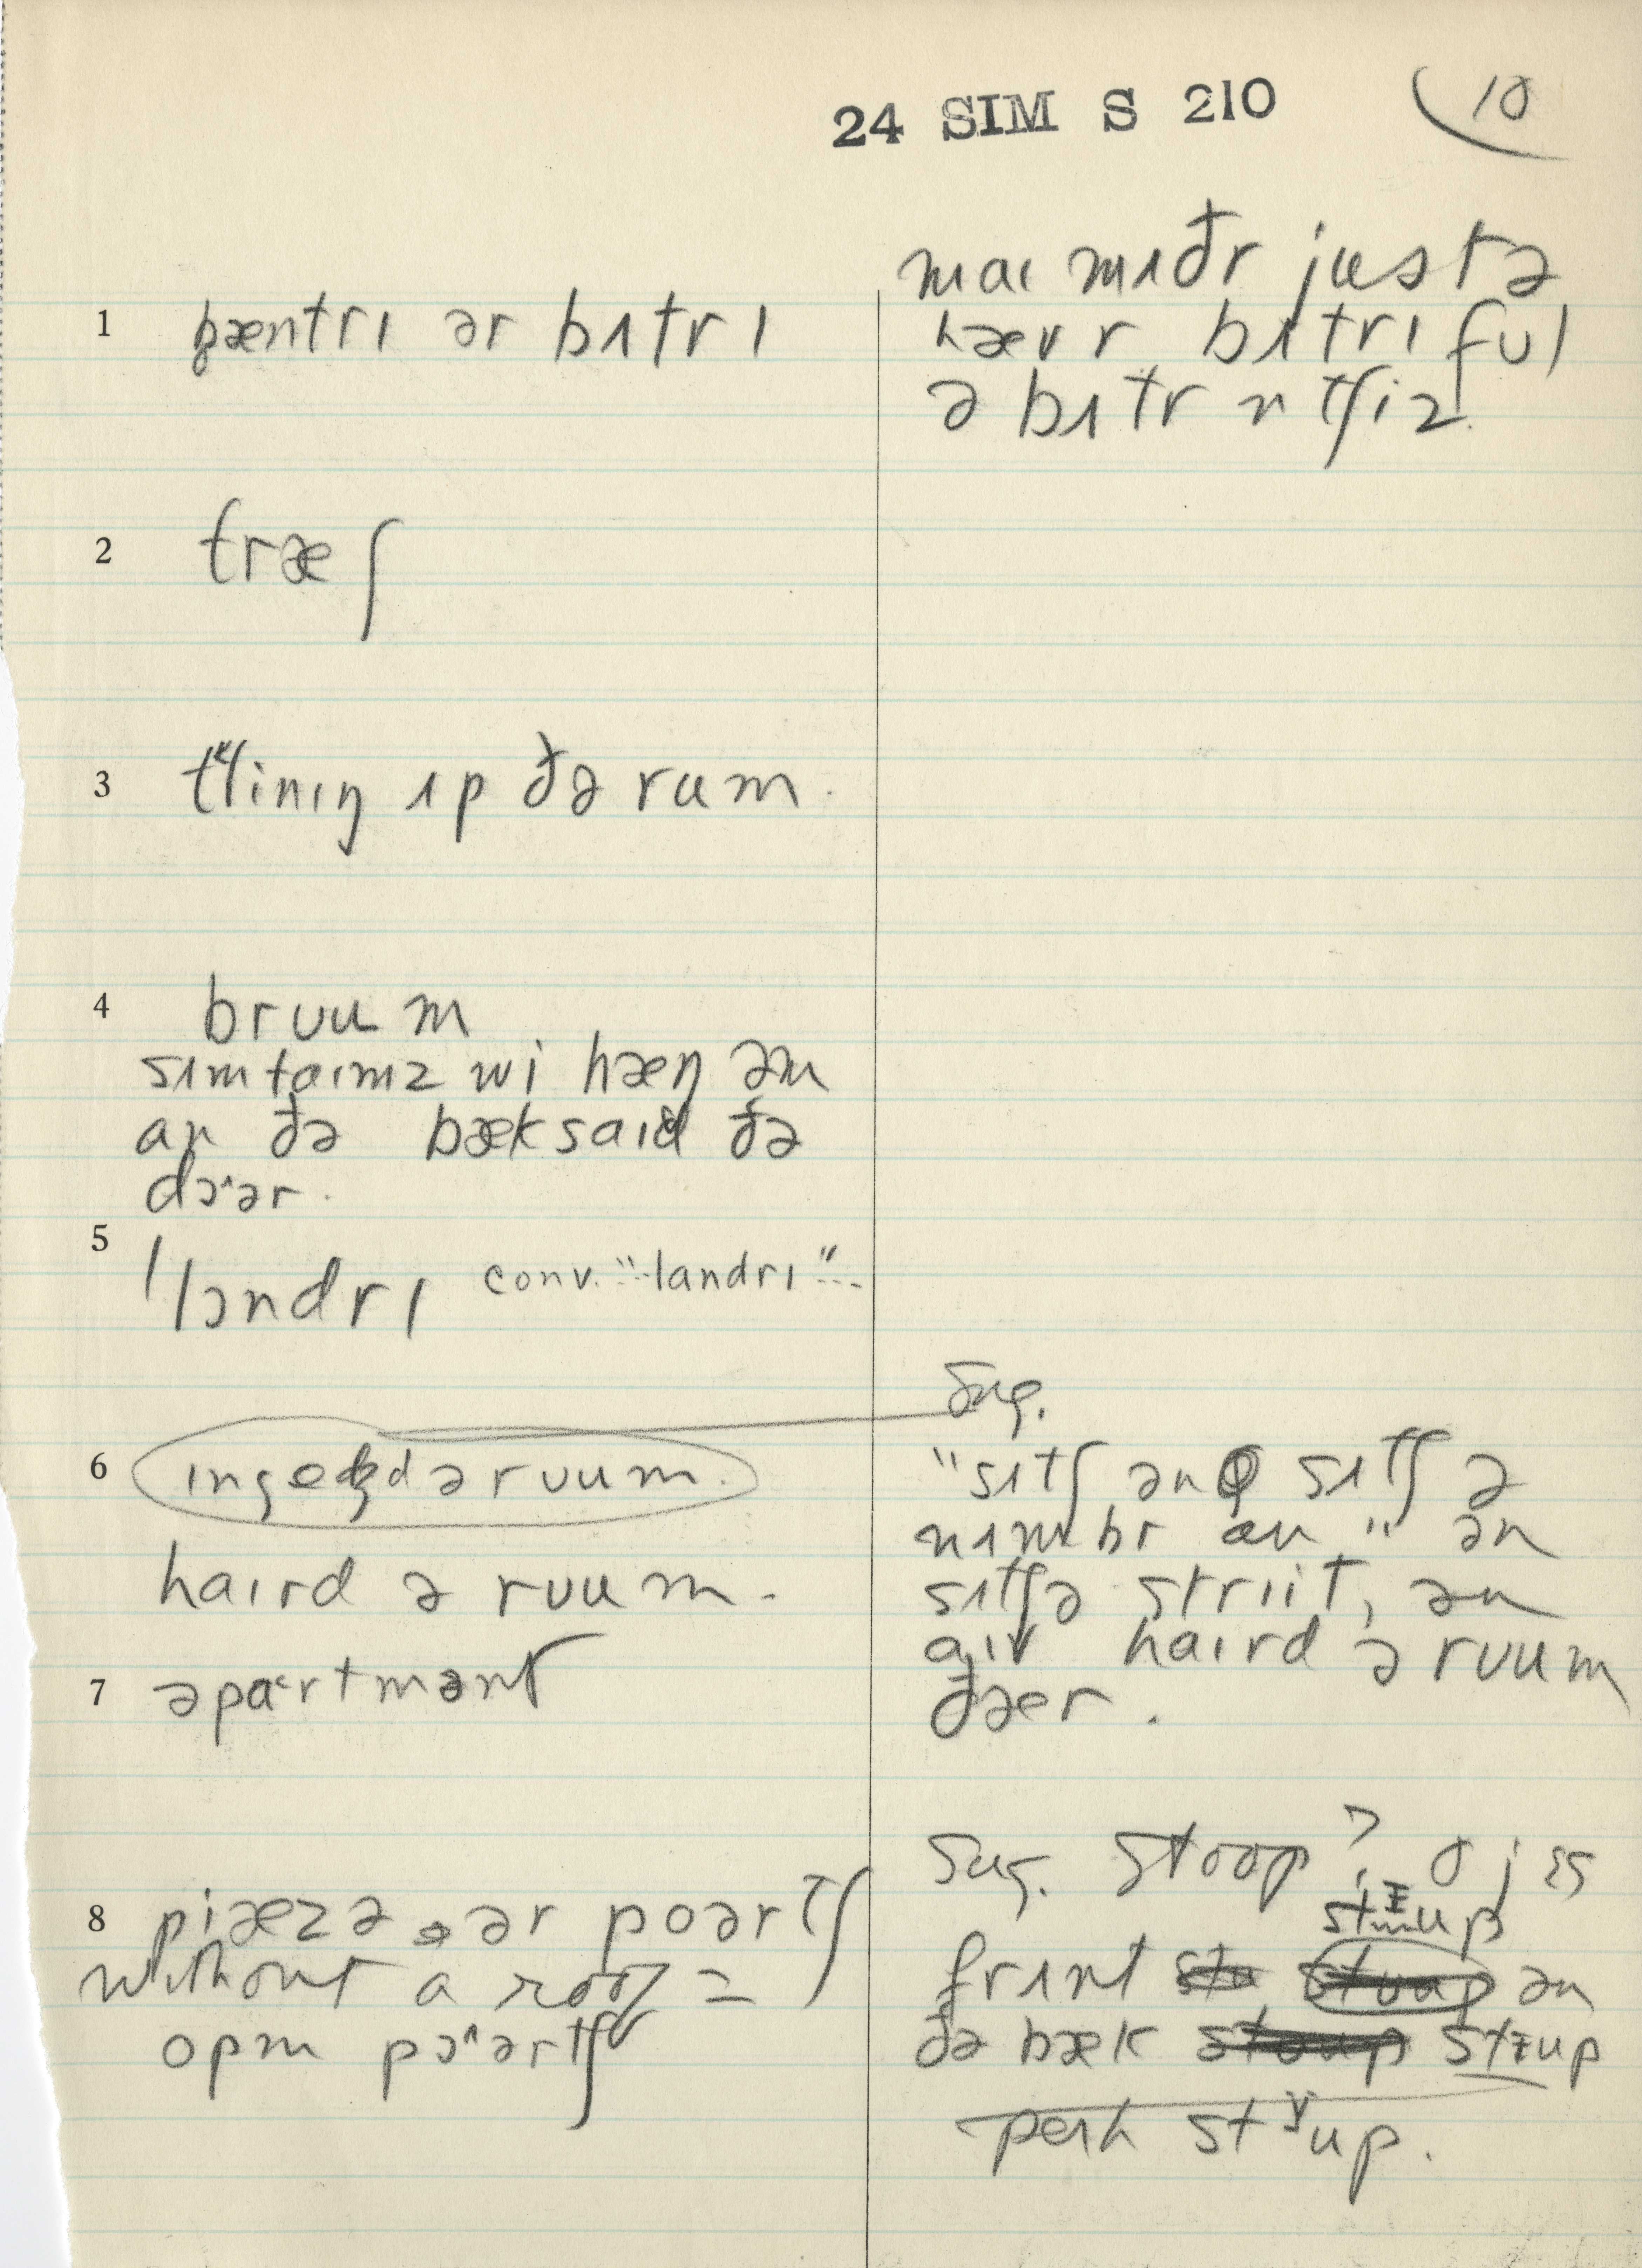 24 SIM S 210 10
1 pæntrɪ ər bʌtrɪ
maɪ mʌðr justə
hævr bʌtrɪ ful
ə bʌtr n tʃiz.
2 træʃ
3 tʃinɪŋ ʌp ðə rum.
4 bruum
sʌmtaɪmz wi hæŋ əm
an ðə bæksaid ðə
dɔ˄ər.
5 'lɔndrɪ conv. "--landrɪ"--
6 ɪngedʒd ə ruum.
haɪrd ə ruum.
Sug.
"sʌtʃ ən sʌtʃ ə
nʌmbr an" ən
sʌtʃə striit, ən
aɪv haɪrd ə ruum
ðæer.
7 əpa˂rtmənt
8 piæzə ər poərtʃ
without a roof =
opm pɔ˄ərtʃ
Sug. stoop? o jɛs
stɪup
frʌnt ən
ðə bæk stɪup
perh stʏup.